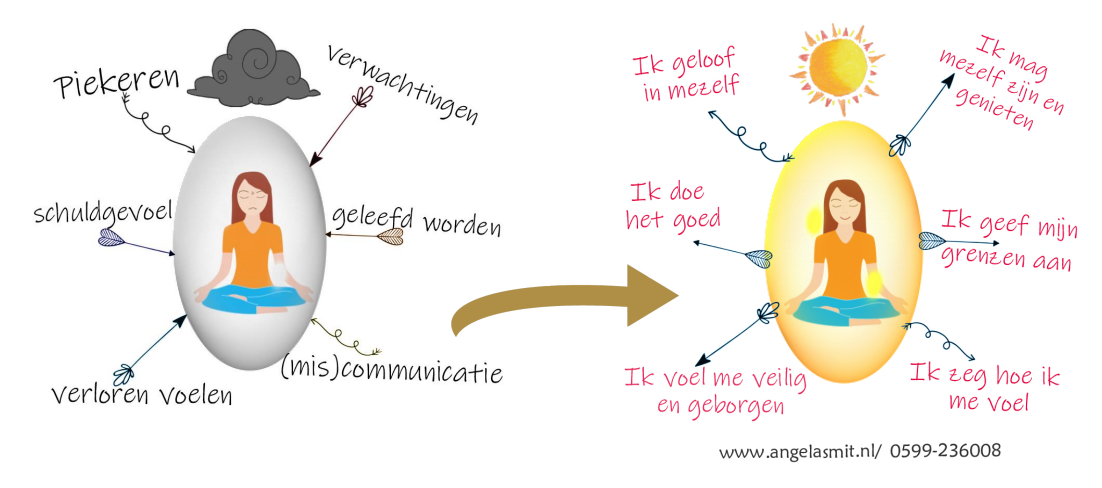 Piekeren
verwachtingen
schuldgevoel
geleefd worden
verloren voelen
(mis)communicatie
Ik geloof
in mezelf
Ik mag
mezelf zijn en
genieten
Ik doe
het goed
Ik geef mijn
grenzen aan
Ik voel me veilig
en geborgen
Ik zeg hoe ik
me voel
www.angelasmit.nl/ 0599-236008